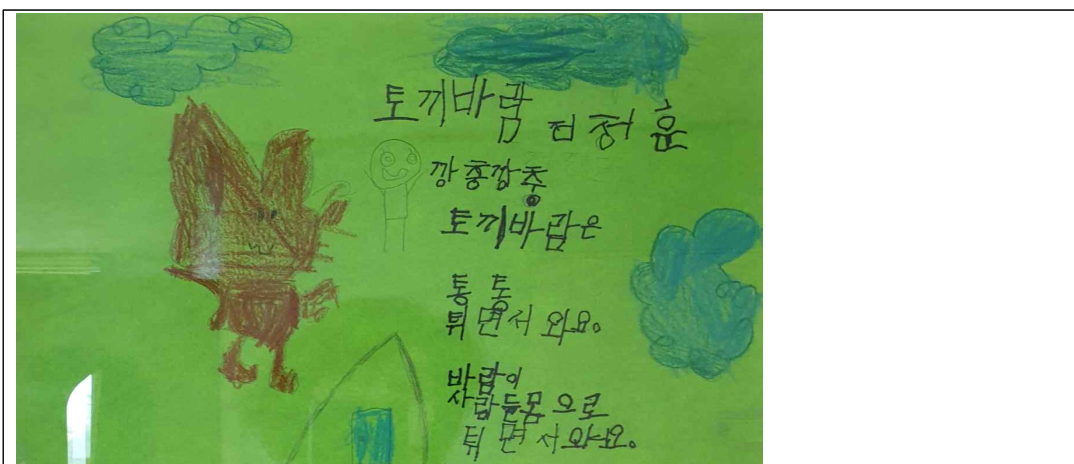 토끼바람 전정훈
깡충깡충
토끼바람은
통 통
뛰면서 와요.
바람이
사람들몸으로
뛰면서와요.